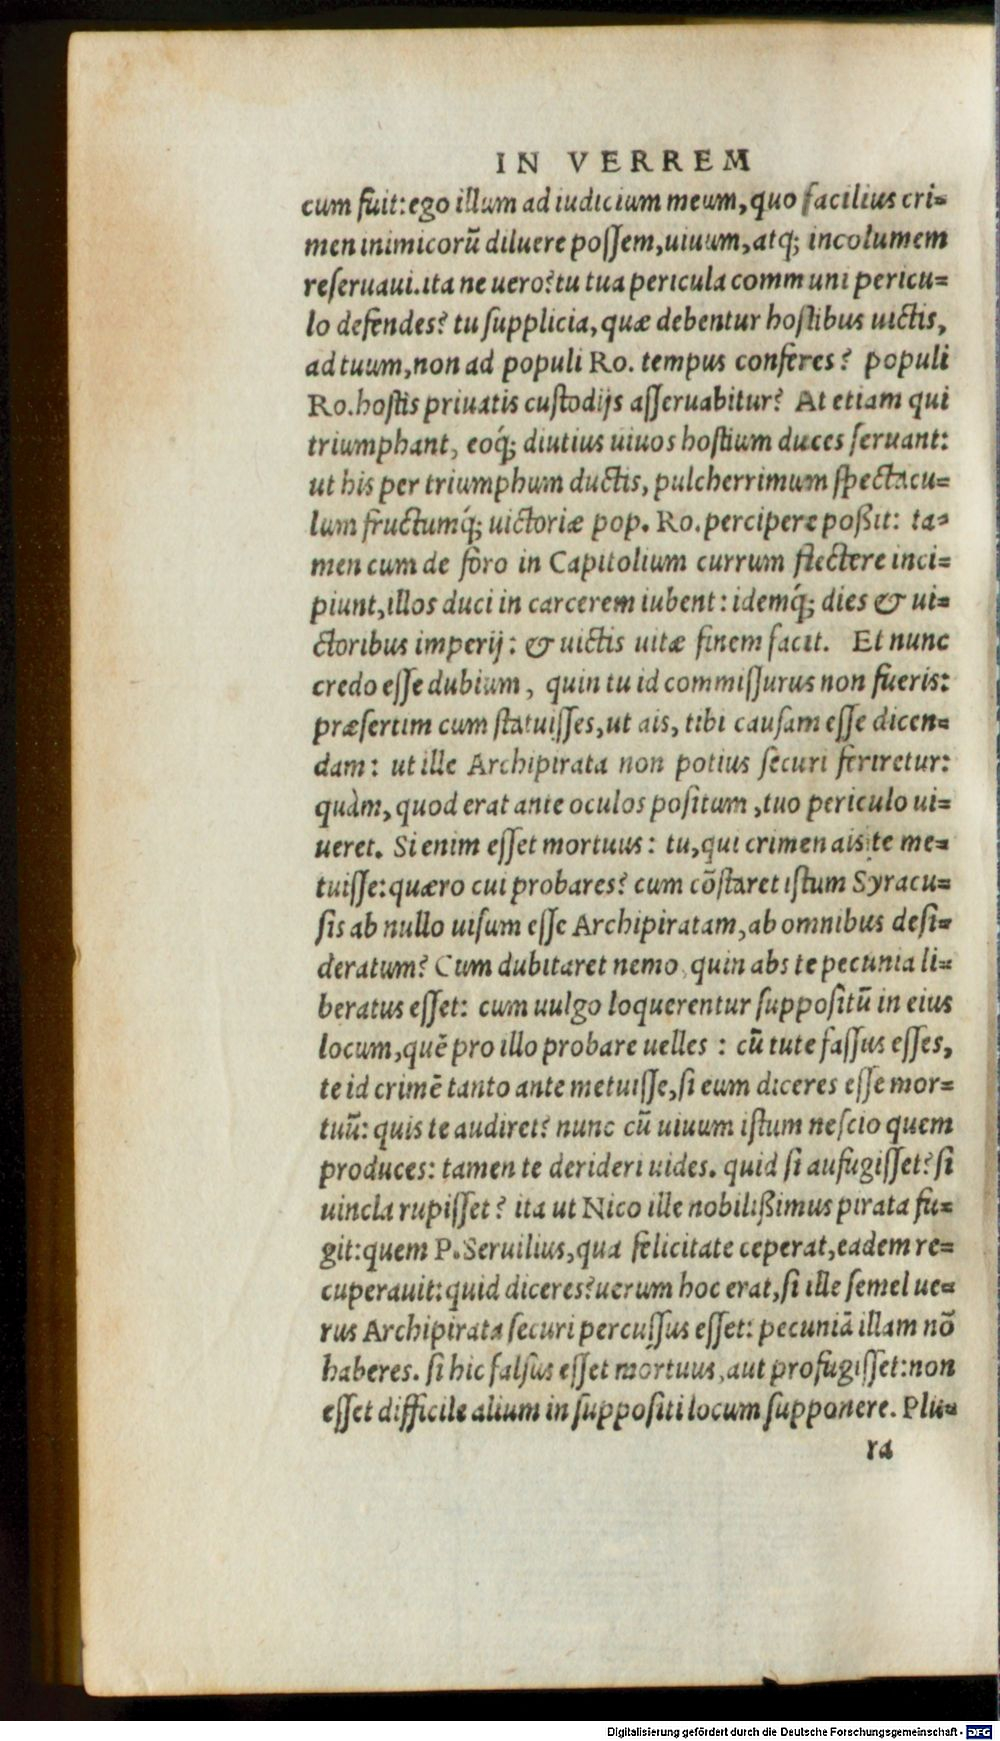 IN VERREM
cum fuit: ego illum ad iudicium meum, quo facilius cri-
men inimicorũ diluere possem, uiuum, atq; incolumem
reseruaui. ita ne uero? tu tua pericula communi pericu-
lo defendes? tu supplicia, quæ debentur hostibus uictis,
ad tuum, non ad populi Ro. tempus conferes? populi
Ro. hostis priuatis custodijs asseruabitur? At etiam qui
triumphant, eoq́; diutius uiuos hostium duces seruant:
ut his per triumphum ductis, pulcherrimum spectacu-
lum fructumq́; uictoriæ pop. Ro. percipere poßit: ta-
men cum de foro in Capitolium currum flectere inci-
piunt, illos duci in carcerem iubent: idemq́; dies & ui-
ctoribus imperij: & uictis uitæ finem facit. Et nunc
credo esse dubium, quin tu id commissurus non fueris:
præsertim cum statuisses, ut ais, tibi causam esse dicen-
dam: ut ille Archipirata non potius securi feriretur:
quàm, quod erat ante oculos positum, tuo periculo ui-
ueret. Si enim esset mortuus: tu, qui crimen ais te me-
tuisse: quæro cui probares? cum cõstaret istum Syracu-
sis ab nullo uisum esse Archipiratam, ab omnibus desi-
deratum? Cum dubitaret nemo, quin abs te pecunia li-
beratus esset: cum uulgo loquerentur suppositũ in eius
locum, quẽ pro illo probare uelles: cũ tute fassus esses,
te id crimẽ tanto ante metuisse, si eum diceres esse mor-
tuũ: quis te audiret? nunc cũ uiuum istum nescio quem
produces: tamen te derideri uides. quid si aufugisset? si
uincla rupisset? ita ut Nico ille nobilißimus pirata fu-
git: quem P. Seruilius, qua felicitate ceperat, eadem re-
cuperauit: quid diceres? uerum hoc erat, si ille semel ue-
rus Archipirata securi percussus esset: pecuniã illam nõ
haberes. si hic falsus esset mortuus, aut profugisset: non
esset difficile alium in suppositi locum supponere. Plu-
ra
Digitalisierung gefördert durch die Deutsche Forschungsgemeinschaft - DFG